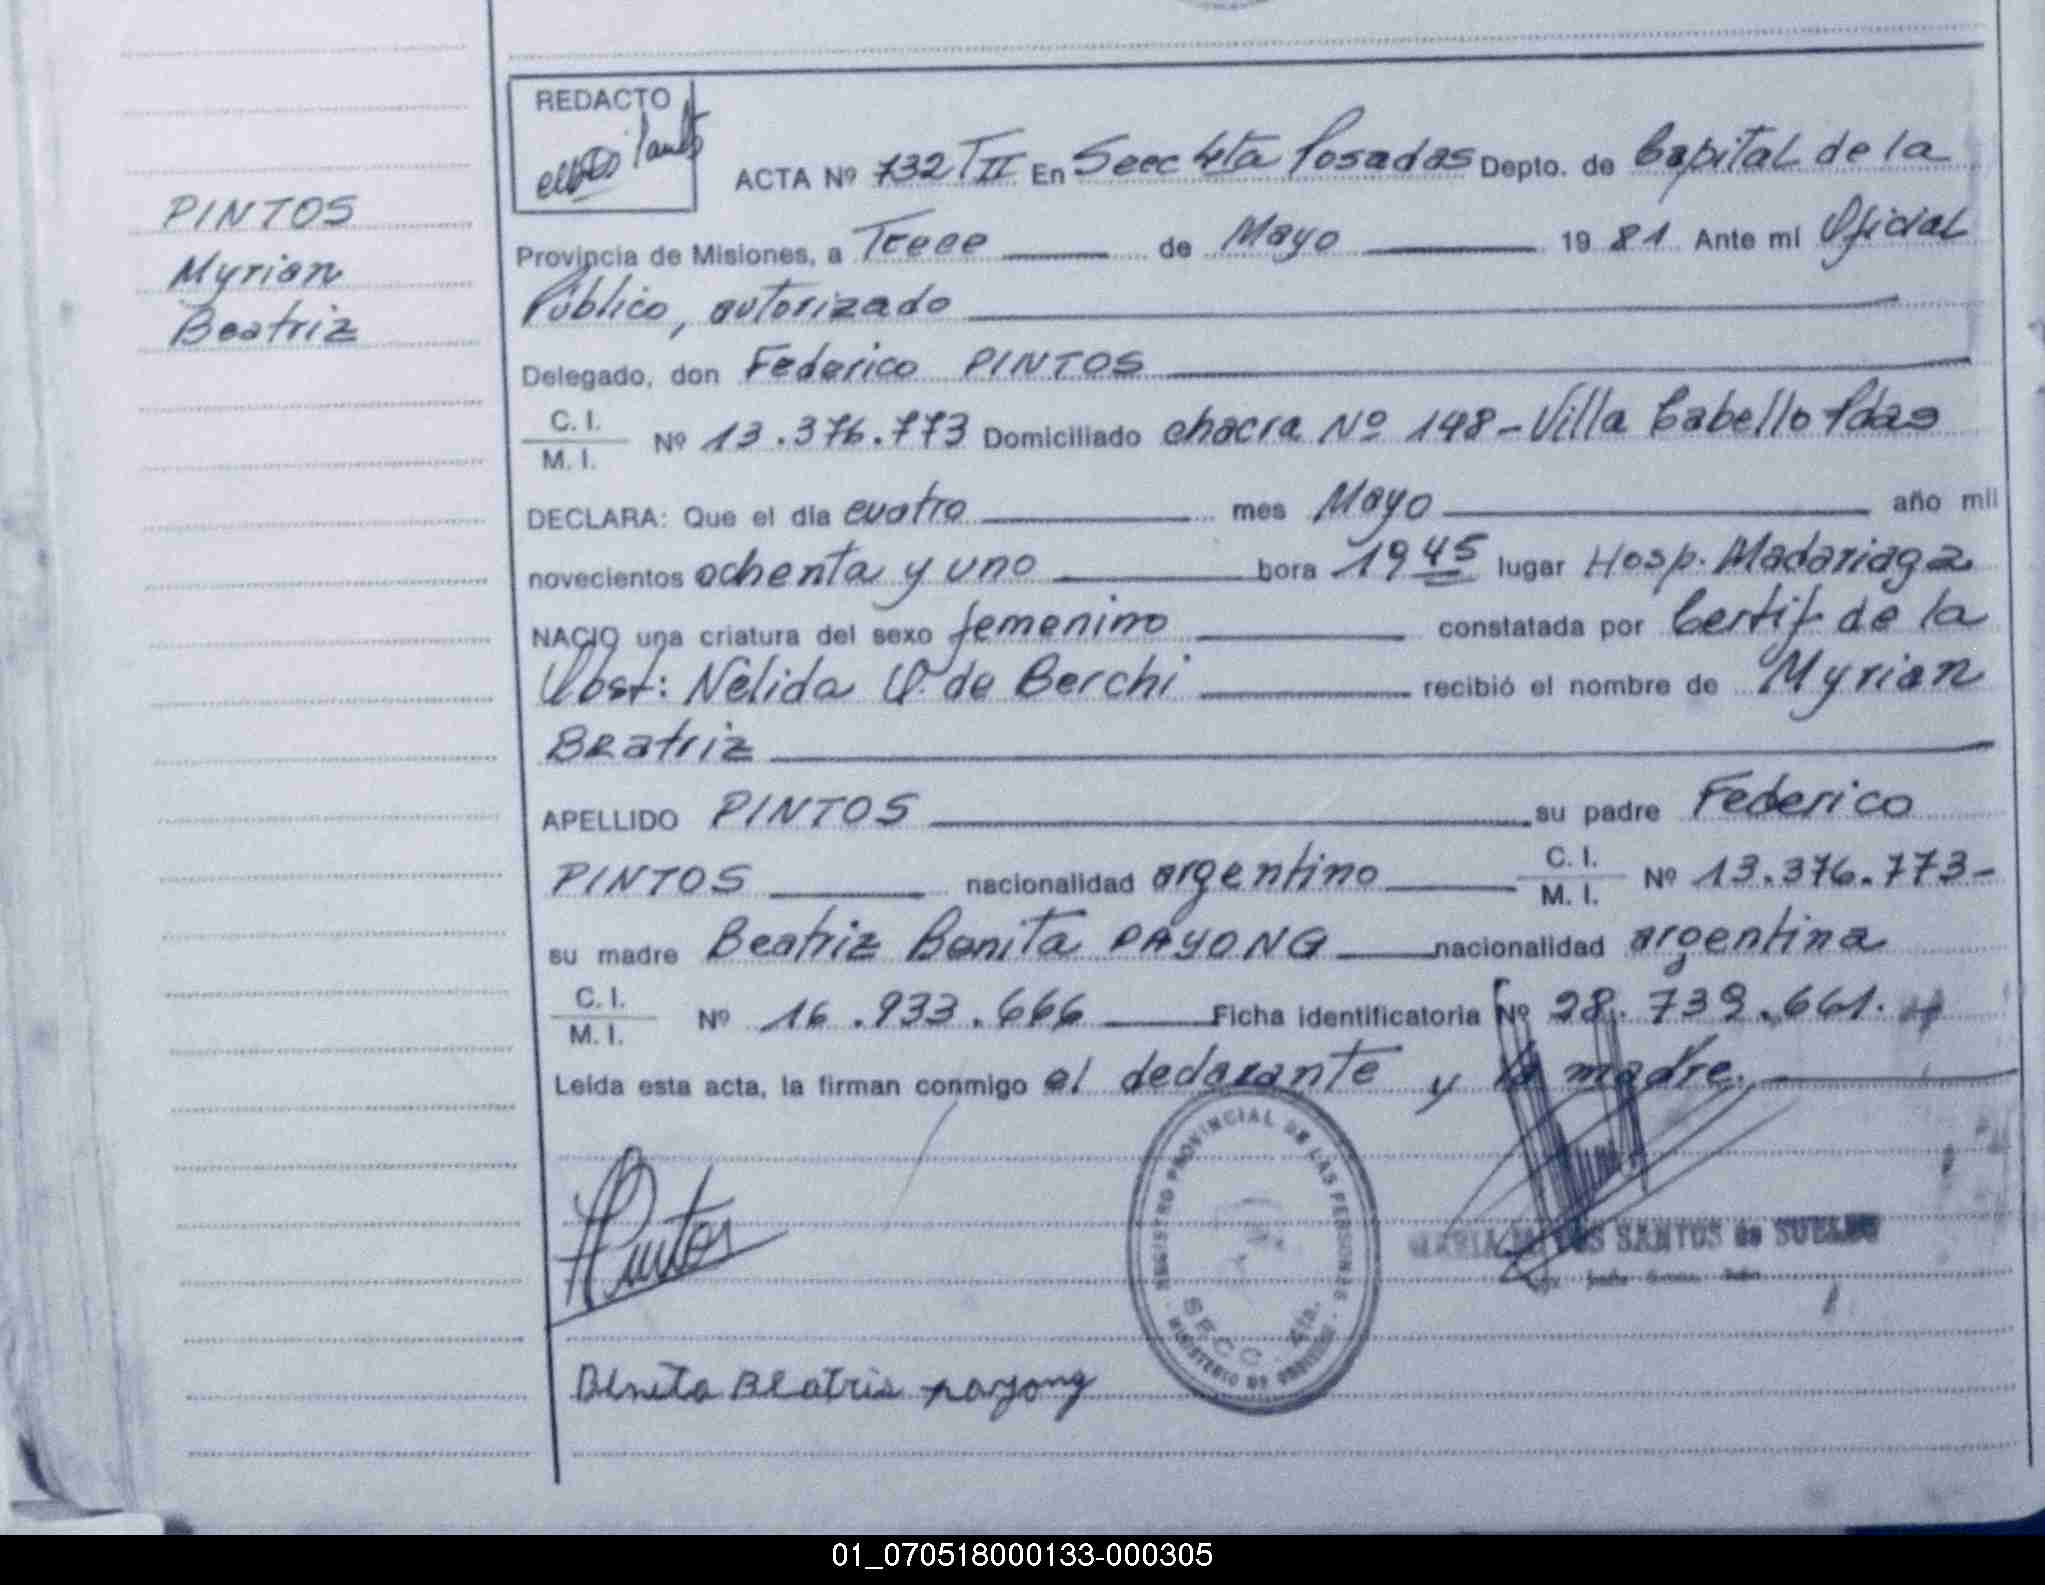 PINTOS
Myrian
Beatriz
REDACTO
ACTA Nº 732 TII En Secc 4ta Posadas Depto. de Capital de la
Provincia de Misiones, a Trece de Mayo 1981 Ante mi Oficial
Público, autorizado
Delegado, don Federico PINTOS
C. I.
M. I.
Nº 13.376.773 Domiciliado chacra Nº 148 - Villa Cabello Pdas
DECLARA: Que el día cuatro mes Mayo año mil
novecientos ochenta y uno hora 19 45 lugar Hosp. Madariaga
NACIO una criatura del sexo femenino constatada por Certif de la
Obst: Nélida de Berchi recibió el nombre de Myrian
Beatriz
APELLIDO PINTOS su padre Federico
PINTOS nacionalidad argentino C. I. / M. I. Nº 13.376.773-
su madre Beatriz Benita PAYONG nacionalidad argentina
C. I.
M. I.
Nº 16.933.666 Ficha identificatoria Nº 28.739.661.
Leída esta acta, la firman conmigo el declarante y la madre.
Pintos
REGISTRO PROVINCIAL DE LAS PERSONAS
SECC. 4ta.
MINISTERIO DE GOBIERNO
MARIA SANTOS de
Benita Beatris payong
01_070518000133-000305